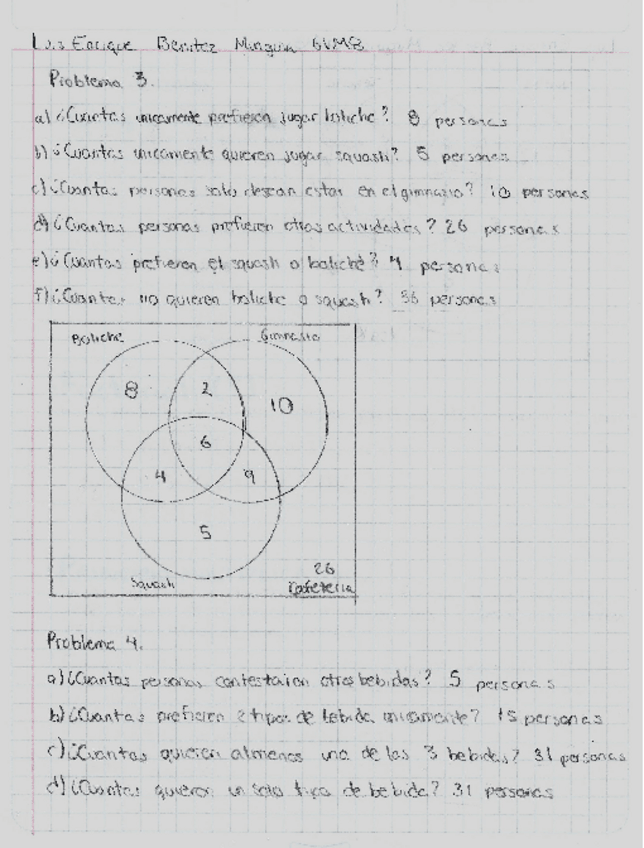 Luis Enrique Benitez Munguia 6VM8
Problema 3.
a) ¿Cuantas unicamente prefieren jugar boliche? 8 personas
b) ¿Cuantas unicamente quieren jugar squash? 5 personas
c) ¿Cuantas personas solo desean estar en el gimnasio? 10 personas
d) ¿Cuantas personas prefieren otras actividades? 26 personas
e) ¿Cuantas prefieren el squash o boliche? 4 personas
f) ¿Cuantas no quieren boliche o squash? 36 personas
Boliche Gimnasio
8 2 10
6
4 9
5
26
Squash Cafeteria
Problema 4.
a) ¿Cuantas personas contestaron otras bebidas? 5 personas
b) ¿Cuantas prefieren 2 tipos de bebida unicamente? 15 personas
c) ¿Cuantas quieren almenos una de las 3 bebidas? 31 personas
d) ¿Cuantas quieren un solo tipo de bebida? 31 personas